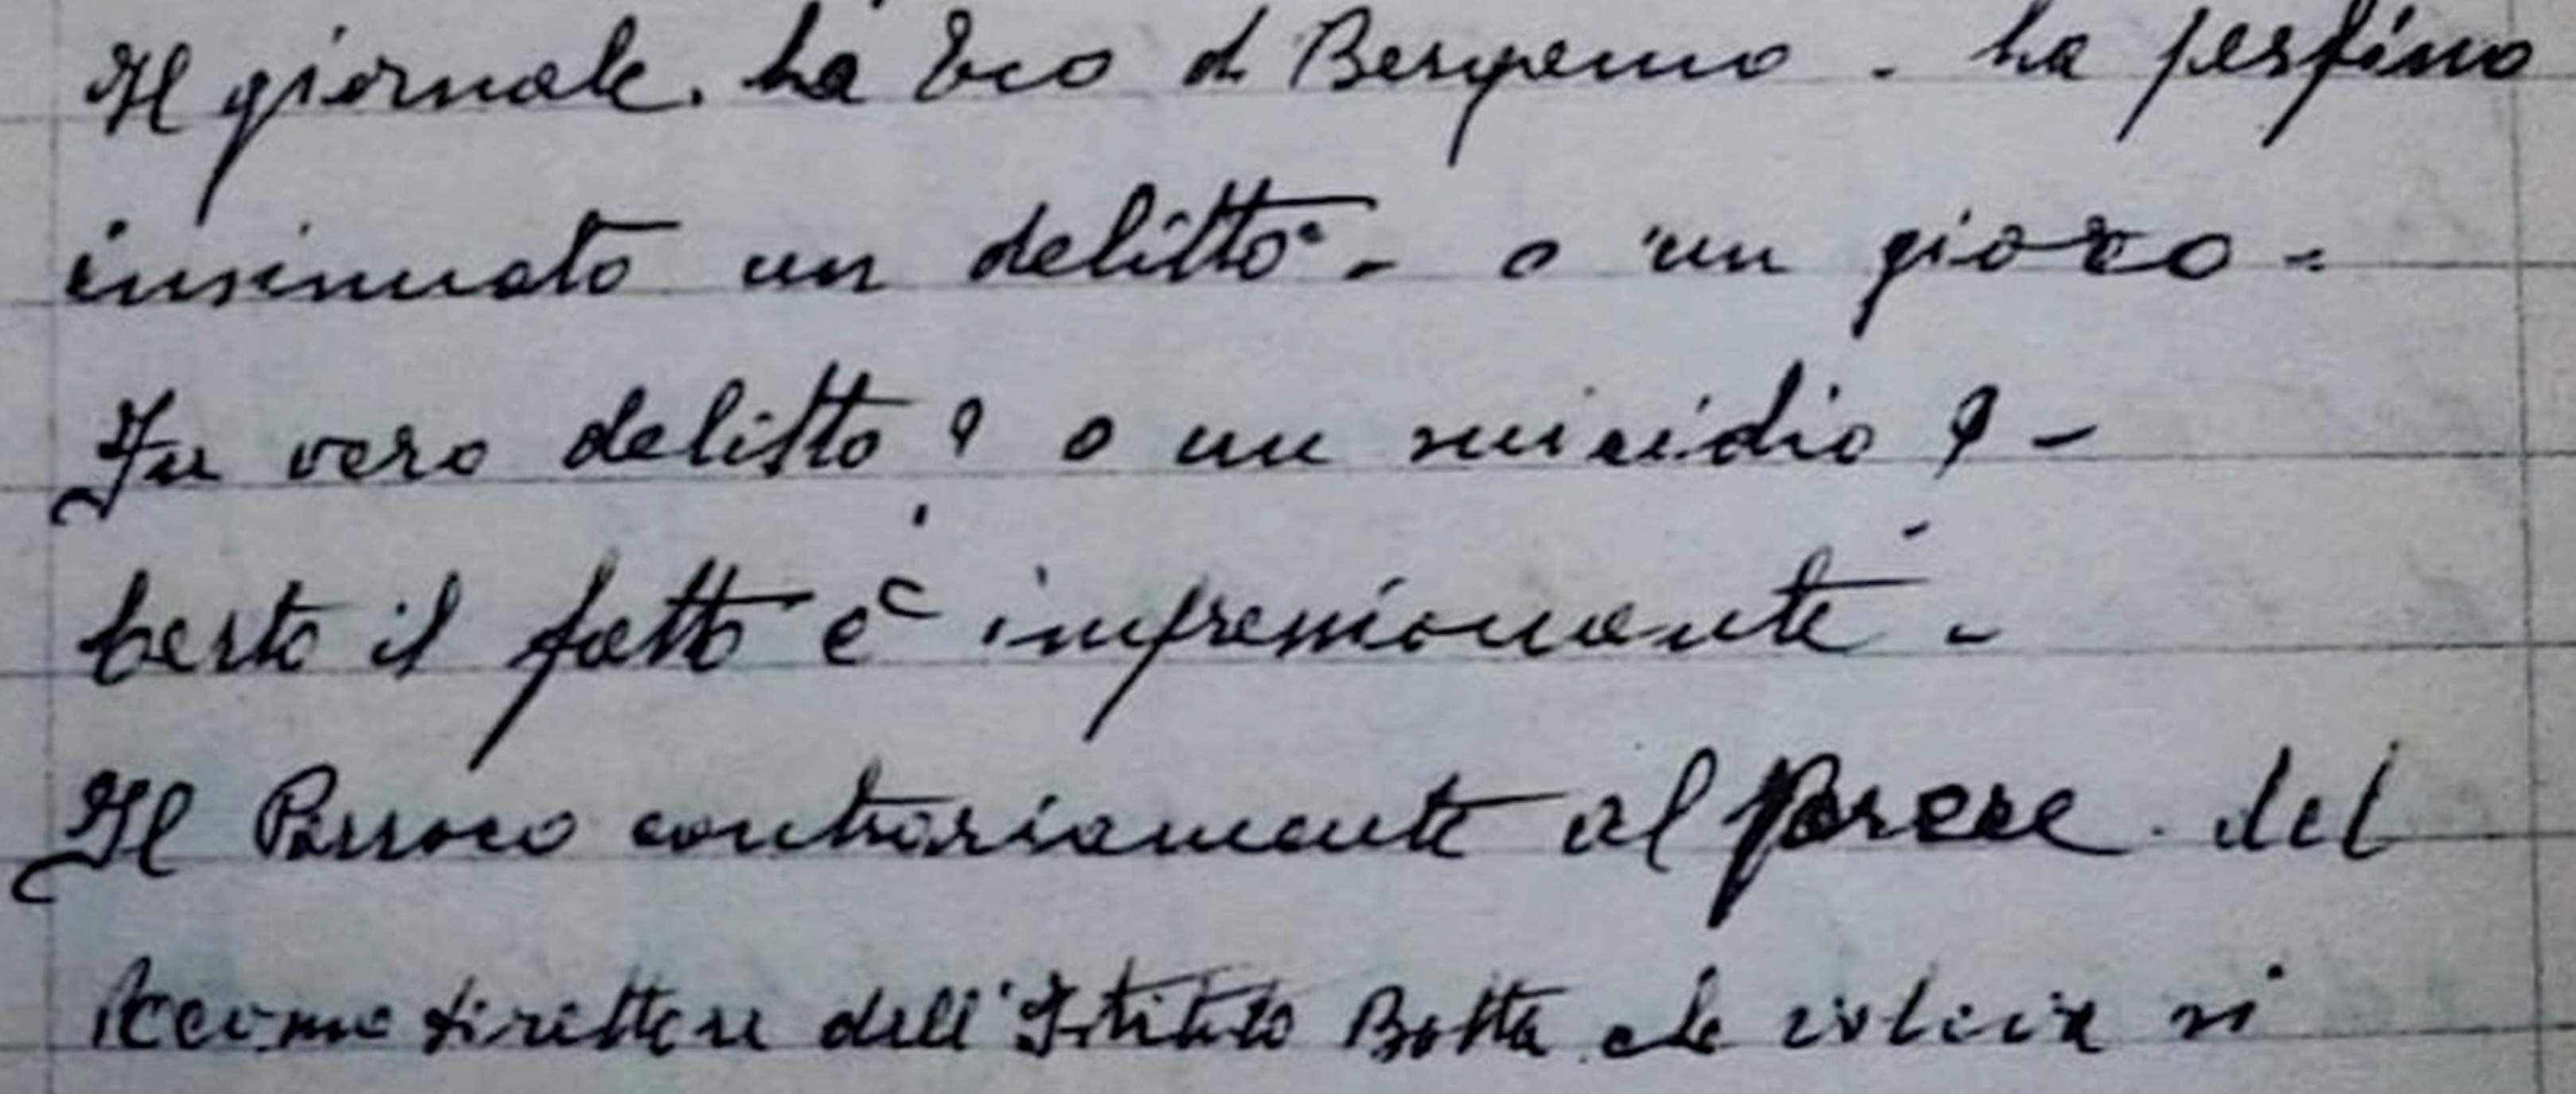 Il giornale. La Eco di Bergamo - ha persino
insinuato un delitto - o un gioco -
Fu vero delitto? o un suicidio? -
Certo il fatto è impressionante -
Il Parroco contrariamente al parere del
direttore dell'Istituto Botta che voleva si